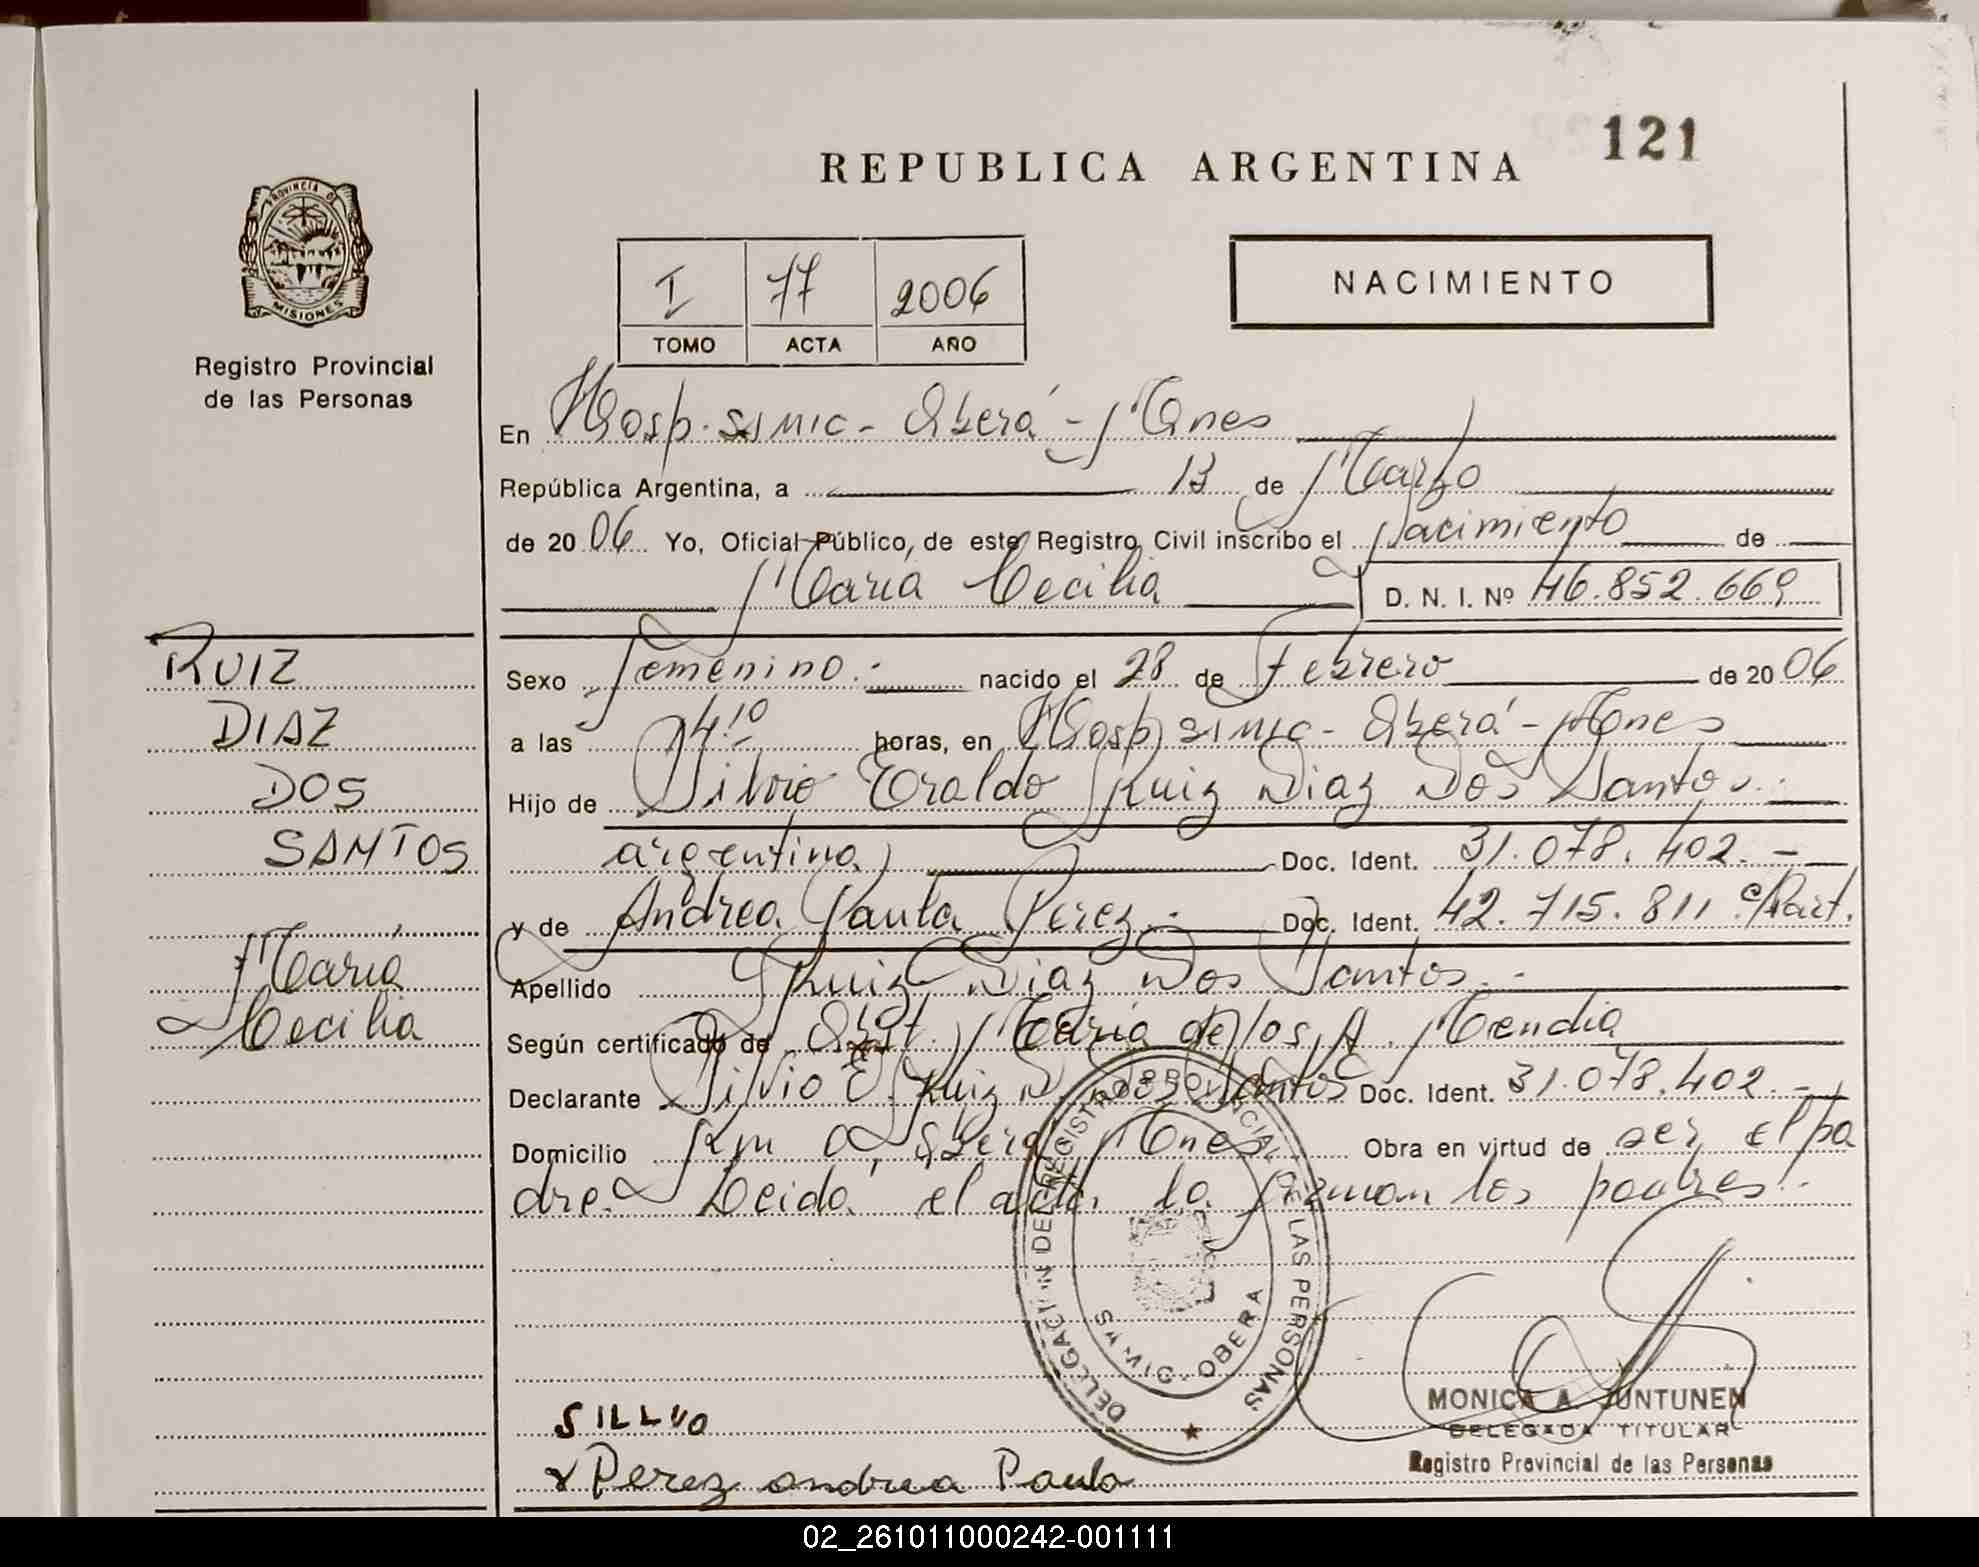 121
REPUBLICA ARGENTINA
PROVINCIA DE MISIONES
Registro Provincial
de las Personas
I 77 2006
TOMO ACTA AÑO
NACIMIENTO
En Hosp. SAMIC - Oberá - Mnes
República Argentina, a 13 de Marzo
de 2006 Yo, Oficial Público, de este Registro Civil inscribo el Nacimiento de
María Cecilia D. N. I. Nº 46.852.669
RUIZ
DIAZ
DOS
SANTOS
María
Cecilia
Sexo femenino.- nacido el 28 de Febrero de 2006
a las 14 10 horas, en Hosp SAMIC - Oberá - Mnes
Hijo de Silvio Eraldo Ruiz Diaz Dos Santos.-
argentino Doc. Ident. 31.078.402.-
y de Andrea Paula Perez.- Doc. Ident. 42.715.811 c/Part.
Apellido Ruiz Diaz Dos Santos.-
Según certificado de Obst. María de los A. Mendia
Declarante Silvio E. Ruiz D. Dos Santos Doc. Ident. 31.078.402.-
Domicilio Km 0, Oberá Mnes Obra en virtud de ser el pa
dre. Leida el acta la firman los padres.-
DELEGACION DEL REGISTRO PROVINCIAL DE LAS PERSONAS
SAMIC - OBERA
SILLVO
Perez andrea Paula
MONICA A. JUNTUNEN
DELEGADA TITULAR
Registro Provincial de las Personas
02_261011000242-001111